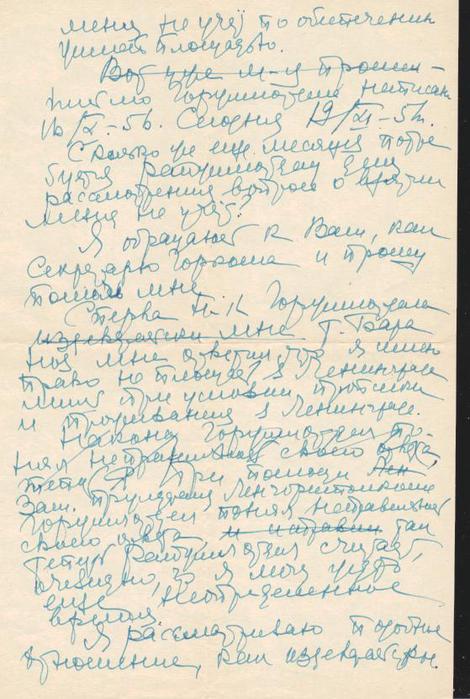 меня на учёт по обеспечению
жилой площадью.
Вот уже м-ц прошел
письмо Горжилотдела написано
16/X-56. Сегодня 19/XI-56.
Сколько же еще месяцев потре
буется Райжилотделу для
рассмотрения вопроса о взятии
меня на учёт?
Я обращаюсь к Вам, как
Секретарю Горкома и прошу
помочь мне.
Сперва Н-к Горжилотдела
издевательски мне т. Бара
нов мне ответил, что я имею
право на площадь в Ленинграде
лишь при условии прописки
и проживания в Ленинграде.
Наконец Горжилотдел по-
нял неправильность своего ответа,
теперь при помощи
Зам. председателя Ленгорисполкома
Горжилотдел понял неправильность
своего ответа и исправил так
теперь Райжилотдел считает,
очевидно, что я могу ждать
еще неопределенное
время.
Я рассматриваю подобное
отношение, как издевательство.